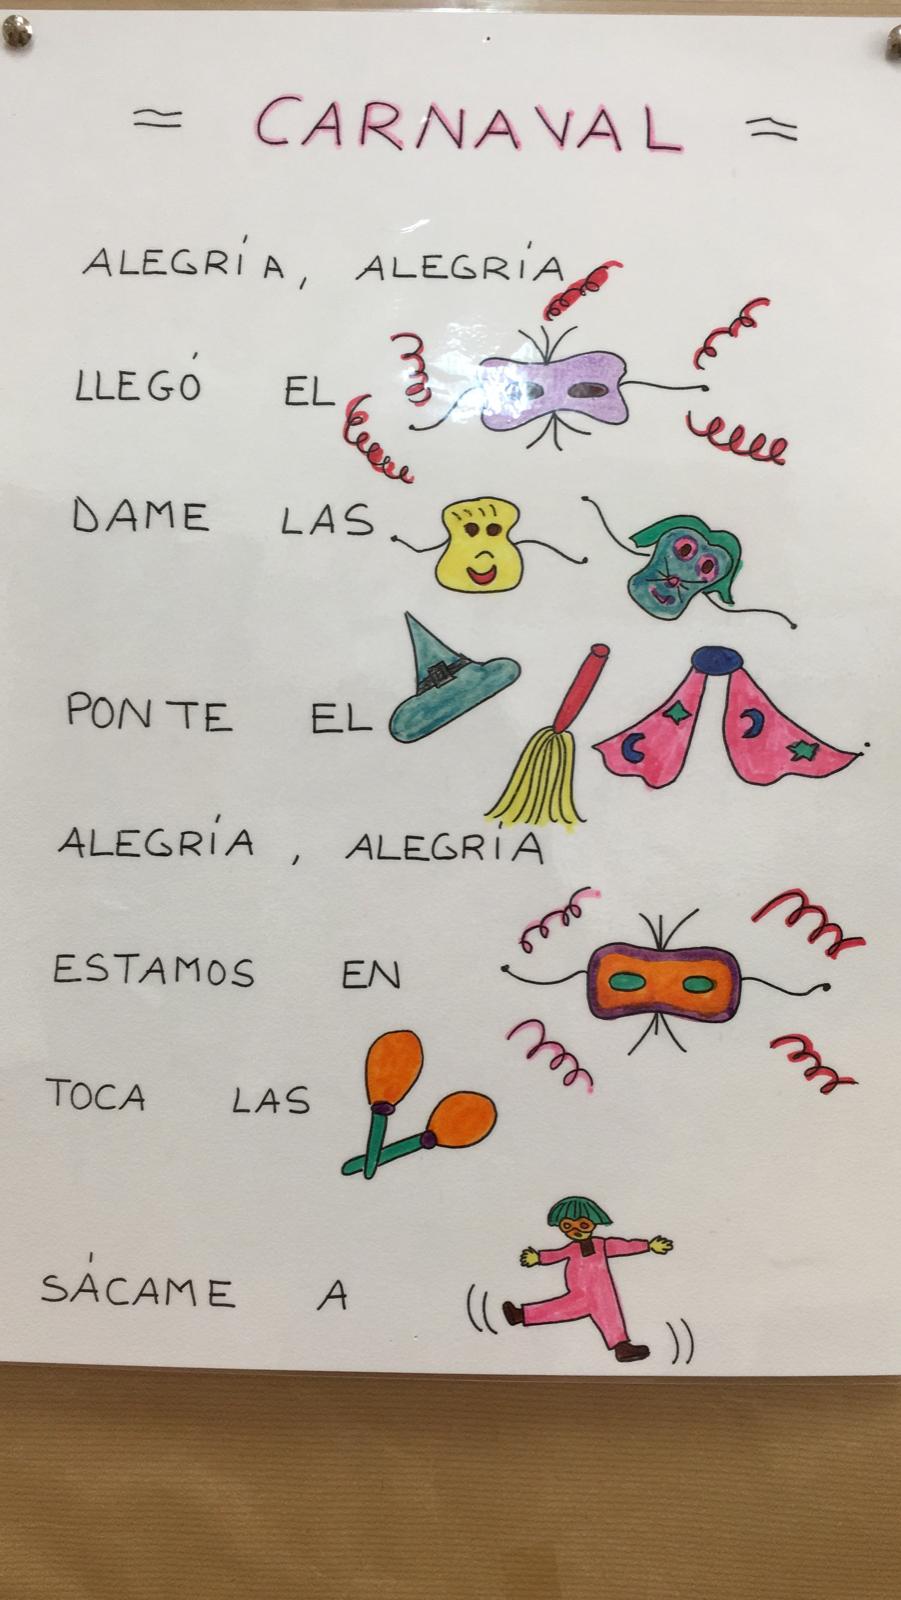 ≈ CARNAVAL ≈
ALEGRÍA, ALEGRÍA
LLEGÓ EL
DAME LAS
PONTE EL
ALEGRÍA, ALEGRÍA
ESTAMOS EN
TOCA LAS
SÁCAME A